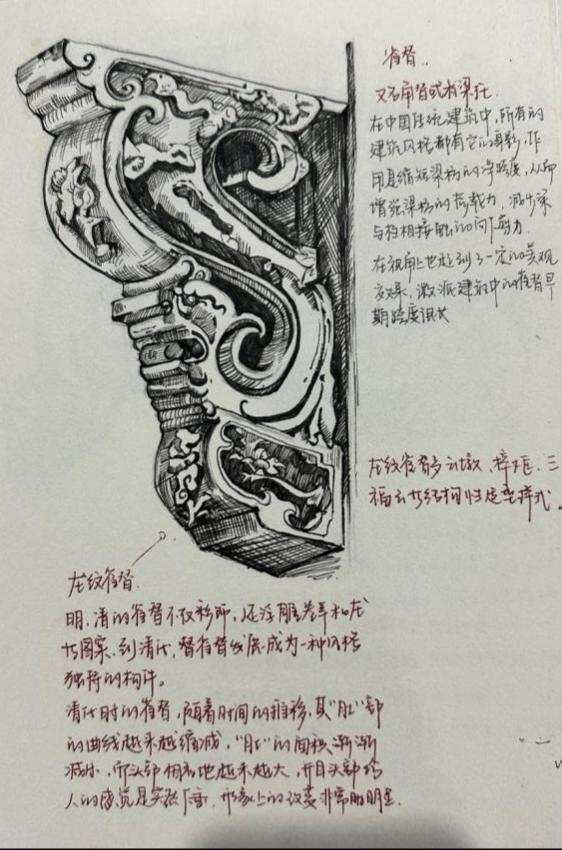 雀替..
又名角替或者梁托.
在中国传统建筑中，所有的
建筑风格都有它的身影，作
用是缩短梁枋的净跨度，从而
增强梁枋的荷载力，减少梁
与柱相接触的向下剪力.
在视角上也起到了一定的美观
效果，徽派建筑中的雀替早
期跨度很大
龙纹雀替多云墩、梓框、三
福云头结构
龙纹雀替.
明、清的雀替不仅彩饰，还浮雕卷草和龙
头图案.到清代，替雀替发展成为一种风格
独特的构件。
清代时的雀替，随着时间的推移，其"肚"部
的曲线越来越缩减，"肚"的面积渐渐
减小，而头部相应地越来越大，并且头部给
人的感觉是实挺下垂，形象上的改变非常的明显.